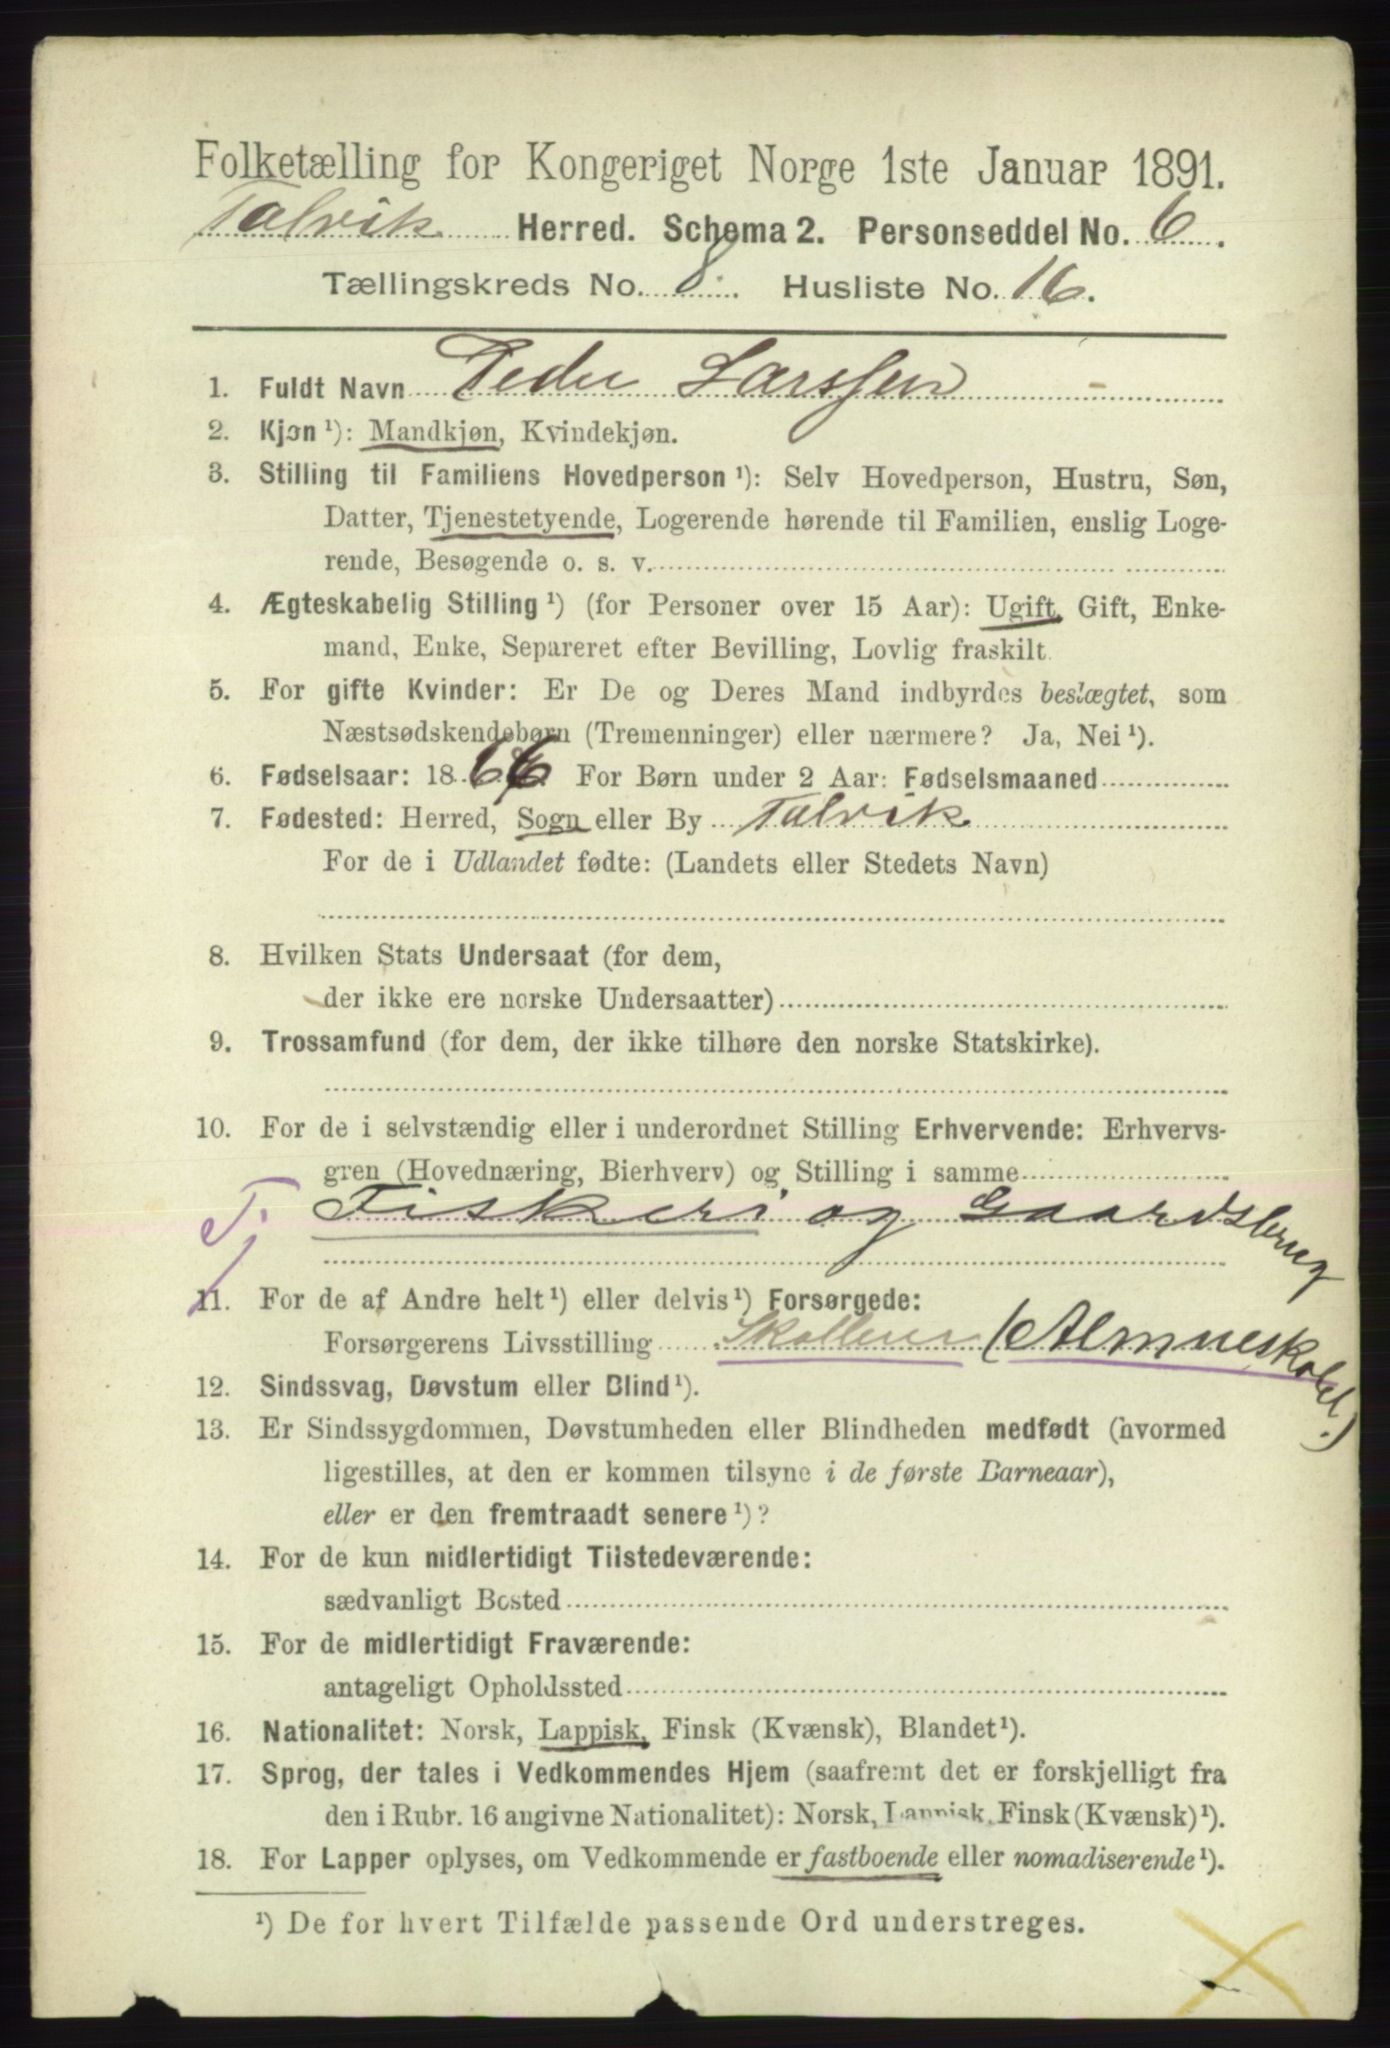 Folketælling for Kongeriget Norge 1ste Januar 1891.
Talvik Herred. Schema 2. Personseddel No. 6.
Tællingskreds No. 8. Husliste No. 16.
1. Fuldt Navn Peder Larssen
2. Kjøn ¹): Mandkjøn, Kvindekjøn.
3. Stilling til Familiens Hovedperson ¹): Selv Hovedperson, Hustru, Søn,
Datter, Tjenestetyende, Logerende hørende til Familien, enslig Loge-
rende, Besøgende o. s. v.
4. Ægteskabelig Stilling ¹) (for Personer over 15 Aar): Ugift, Gift, Enke-
mand, Enke, Separeret efter Bevilling, Lovlig fraskilt.
5. For gifte Kvinder: Er De og Deres Mand indbyrdes beslægtet, som
Næstsødskendebørn (Tremenninger) eller nærmere? Ja, Nei ¹).
6. Fødselsaar: 1866 For Børn under 2 Aar: Fødselsmaaned
7. Fødested: Herred, Sogn eller By Talvik
For de i Udlandet fødte: (Landets eller Stedets Navn)
8. Hvilken Stats Undersaat (for dem,
der ikke ere norske Undersaatter)
9. Trossamfund (for dem, der ikke tilhøre den norske Statskirke).
10. For de i selvstændig eller i underordnet Stilling Erhvervende: Erhvervs-
gren (Hovednæring, Bierhverv) og Stilling i samme
Tj Fiskeri og Gaardsbrug
11. For de af Andre helt ¹) eller delvis ¹) Forsørgede:
Forsørgerens Livsstilling (Almueskolel.)
12. Sindssvag, Døvstum eller Blind ¹).
13. Er Sindssygdommen, Døvstumheden eller Blindheden medfødt (hvormed
ligestilles, at den er kommen tilsyne i de første Barneaar),
eller er den fremtraadt senere ¹)?
14. For de kun midlertidigt Tilstedeværende:
sædvanligt Bosted
15. For de midlertidigt Fraværende:
antageligt Opholdssted
16. Nationalitet: Norsk, Lappisk, Finsk (Kvænsk), Blandet ¹).
17. Sprog, der tales i Vedkommendes Hjem (saafremt det er forskjelligt fra
den i Rubr. 16 angivne Nationalitet): Norsk, Lappisk, Finsk (Kvænsk) ¹).
18. For Lapper oplyses, om Vedkommende er fastboende eller nomadiserende ¹).
¹) De for hvert Tilfælde passende Ord understreges.